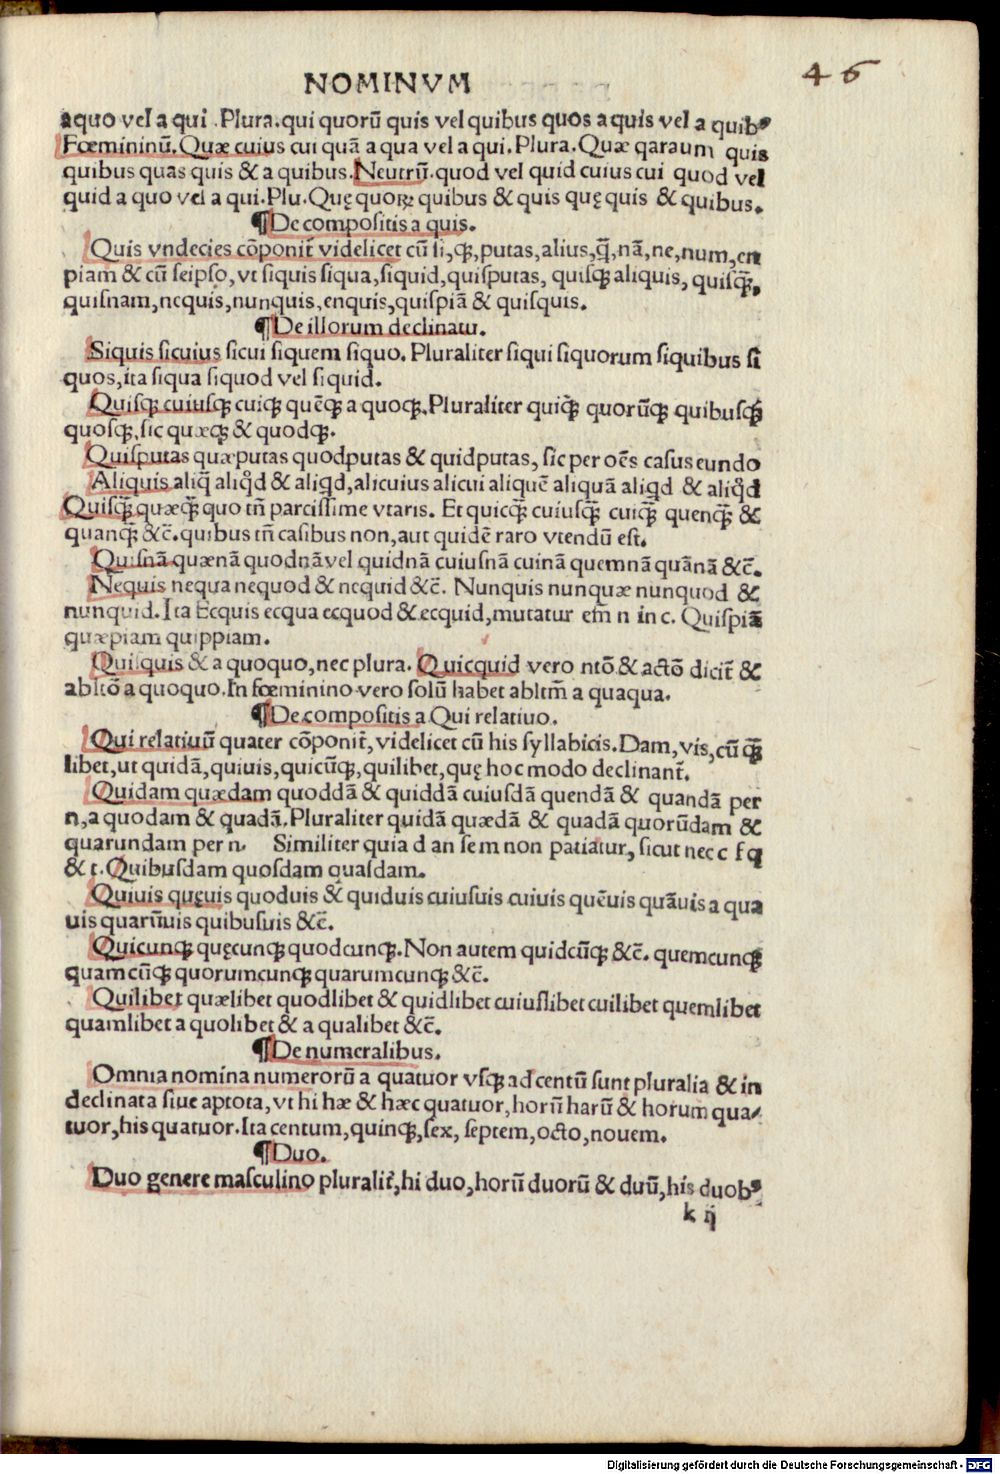 NOMINVM
46
a quo vel a qui .Plura.qui quorũ quis vel quibus quos a quis vel a quibꝰ
Fœmininũ. Quæ cuius cui quã a qua vel a qui. Plura. Quæ qaraum quis
quibus quas quis & a quibus. Neutrũ. quod vel quid cuius cui quod vel
quid a quo vel a qui. Plu. Quę quoꝝ quibus & quis quę quis & quibus.
¶De compositis a quis.
Quis vndecies cõponit̃ videlicet cũ si, qꝫ, putas, alius, q̃, nã, ne, num, en
piam & cũ seipso, vt siquis siqua, siquid, quisputas, quisqꝫ aliquis, quisq̃,
quisnam, nequis, nunquis, enquis, quispiã & quisquis.
¶De illorum declinatu.
Siquis sicuius sicui siquem siquo. Pluraliter siqui siquorum siquibus si
quos, ita siqua siquod vel siquid.
Quisqꝫ cuiusqꝫ cuiqꝫ quẽqꝫ a quoqꝫ. Pluraliter quiqꝫ quorũqꝫ quibusqꝫ
quosqꝫ, sic quæqꝫ & quodqꝫ.
Quisputas quæputas quodputas & quidputas, sic per oẽs casus eundo
Aliquis aliq̃ aliq̊d & aliqd, alicuius alicui aliquẽ aliquã aliqd & aliq̊d
Quisq̃ quæq̃ quo tñ parcissime vtaris. Et quicq̃ cuiusq̃ cuiq̃ quenq̃ &
quanq̃ &c̃. quibus tñ casibus non, aut quidẽ raro vtendũ est.
Quisnã quænã quodnã vel quidnã cuiusnã cuinã quemnã quãnã &c̃.
Nequis nequa nequod & nequid &c̃. Nunquis nunquæ nunquod &
nunquid. Ita Ecquis ecqua ecquod & ecquid, mutatur em̃ n in c. Quispiã
quæpiam quippiam.
Quisquis & a quoquo, nec plura. Quicquid vero ntõ & actõ dicit̃ &
abltõ a quoquo. In fœminino vero solũ habet abltm̃ a quaqua.
¶De compositis a Qui relatiuo.
Qui relatiuũ quater cõponit̃, videlicet cũ his syllabicis. Dam, vis, cũq̃
libet, ut quidã, quiuis, quicũqꝫ, quilibet, quę hoc modo declinant̃.
Quidam quædam quoddã & quiddã cuiusdã quendã & quandã per
n, a quodam & quadã. Pluraliter quidã quædã & quadã quorũdam &
quarundam per n. Similiter quia d an se m non patiatur, sicut nec c f q
& t. Quibusdam quosdam quasdam.
Quiuis quęuis quoduis & quiduis cuiusuis cuiuis quẽuis quãuis a qua
uis quarũuis quibusuis &c̃.
Quicunqꝫ quęcunqꝫ quodcunqꝫ. Non autem quidcũqꝫ &c̃. quemcunqꝫ
quamcũqꝫ quorumcunqꝫ quarumcunqꝫ &c̃.
Quilibet quælibet quodlibet & quidlibet cuiuslibet cuilibet quemlibet
quamlibet a quolibet & a qualibet &c̃.
¶De numeralibus.
Omnia nomina numerorũ a quatuor vsqꝫ ad centũ sunt pluralia & in
declinata siue aptota, vt hi hæ & hæc quatuor, horũ harũ & horum qua⸗
tuor, his quatuor. Ita centum, quinqꝫ, sex, septem, octo, nouem.
¶Duo.
Duo genere masculino pluralit̃, hi duo, horũ duorũ & duũ, his duobꝰ
k ij
Digitalisierung gefördert durch die Deutsche Forschungsgemeinschaft - DFG